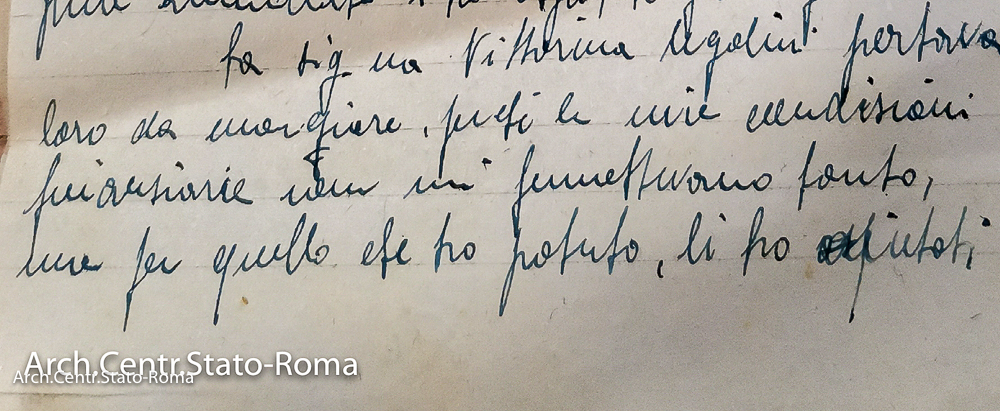 La sig.na Vittorina Ugolini portava
loro da mangiare, poichè le mie condizioni
finanziarie non mi permettevano tanto,
ma per quello che ho potuto, li ho aiutati
Arch.Centr.Stato-Roma
Arch.Centr.Stato-Roma